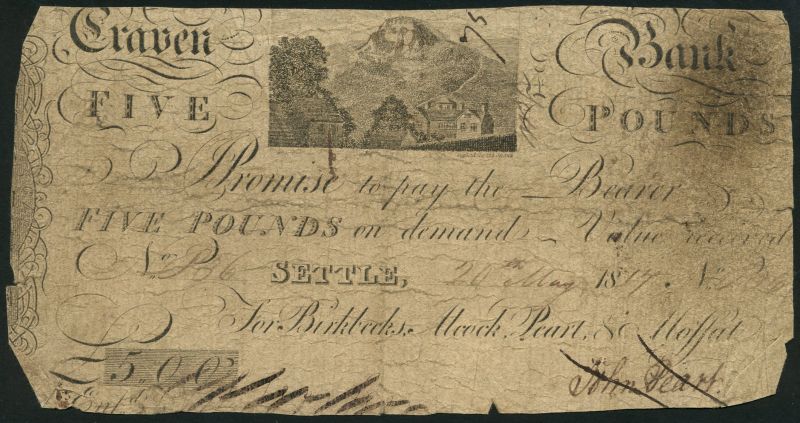 Craven Bank
FIVE POUNDS
I Promise to pay the Bearer
FIVE POUNDS on demand Value received
No. SETTLE, 20th May 1817 No.
For Birkbecks, Alcock, Peart, & Moffat
£5,,0,,0
Entd. John Peart